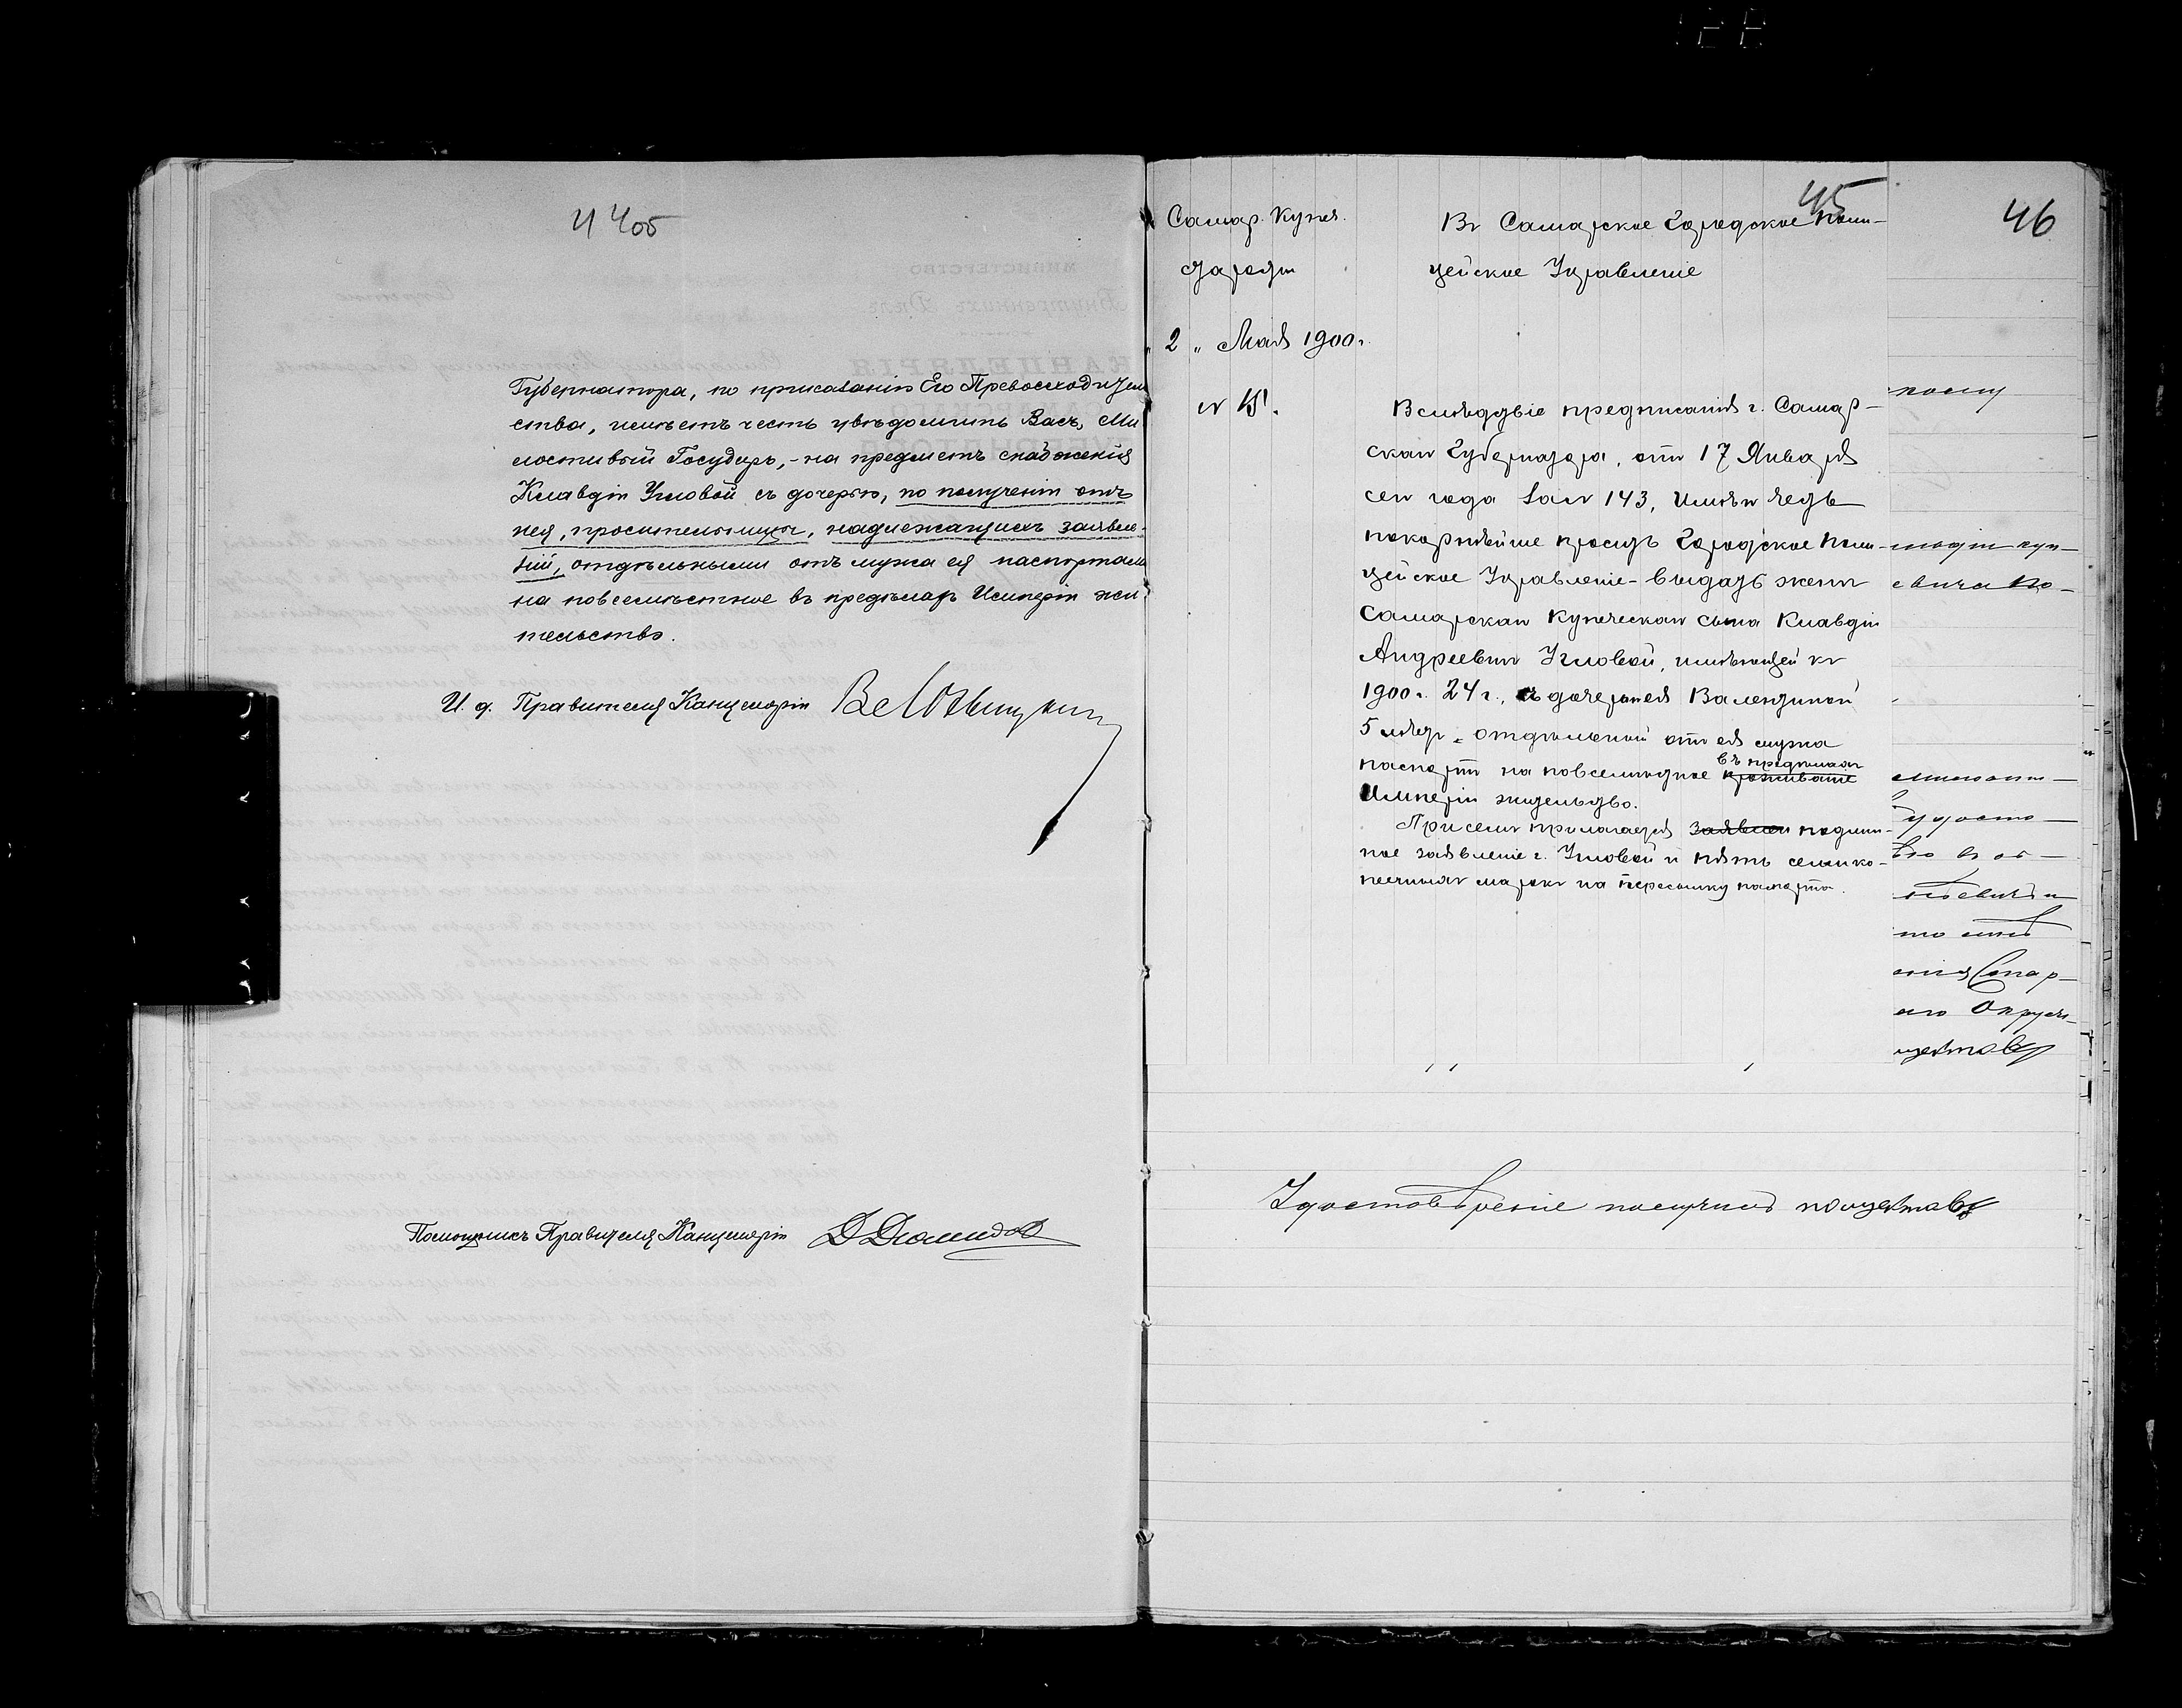 44 об
Губернатора, по приказанію Его Превосходитель
ства, имѣетъ честь увѣдомить Васъ, Ми
лостивый Государь, - на предметъ снабженія
Клавдіи Угловой съ дочерью, по полученіи отъ
нея, просительницы, надлежащихъ заявле-
ній, отдѣльными отъ мужа ея паспортами
на повсемѣстное въ предѣлахъ Имперіи жи
тельство.
И. д. Правителя Канцеляріи
Помощникъ Правителя Канцеляріи
45
Самар. Купеч.
староста
2 " Мая 1900 г.
Въ Самарское Городское Поли-
цейское Управленіе
Вслѣдствіе предписанія г. Самар-
скаго Губернатора, отъ 17 Января
сего года за № 143, имѣю честь
покорнѣйше просить Городское Поли-
цейское Управленіе - выдать женѣ
Самарскаго купеческаго сына Клавдіи
Андреевнѣ Угловой, имѣющей къ
1900 г. 24 г., съ дочерью ея Валентиной
5 лѣтъ - отдѣльный отъ ея мужа
паспортъ на повсемѣстное проживаніе въ предѣлахъ
Имперіи жительство.
При семъ прилагается заявлен подлин-
ное заявленіе г. Угловой и пять семико-
пеечныхъ марокъ на пересылку паспорта.
46
Удостовѣреніе получилъ